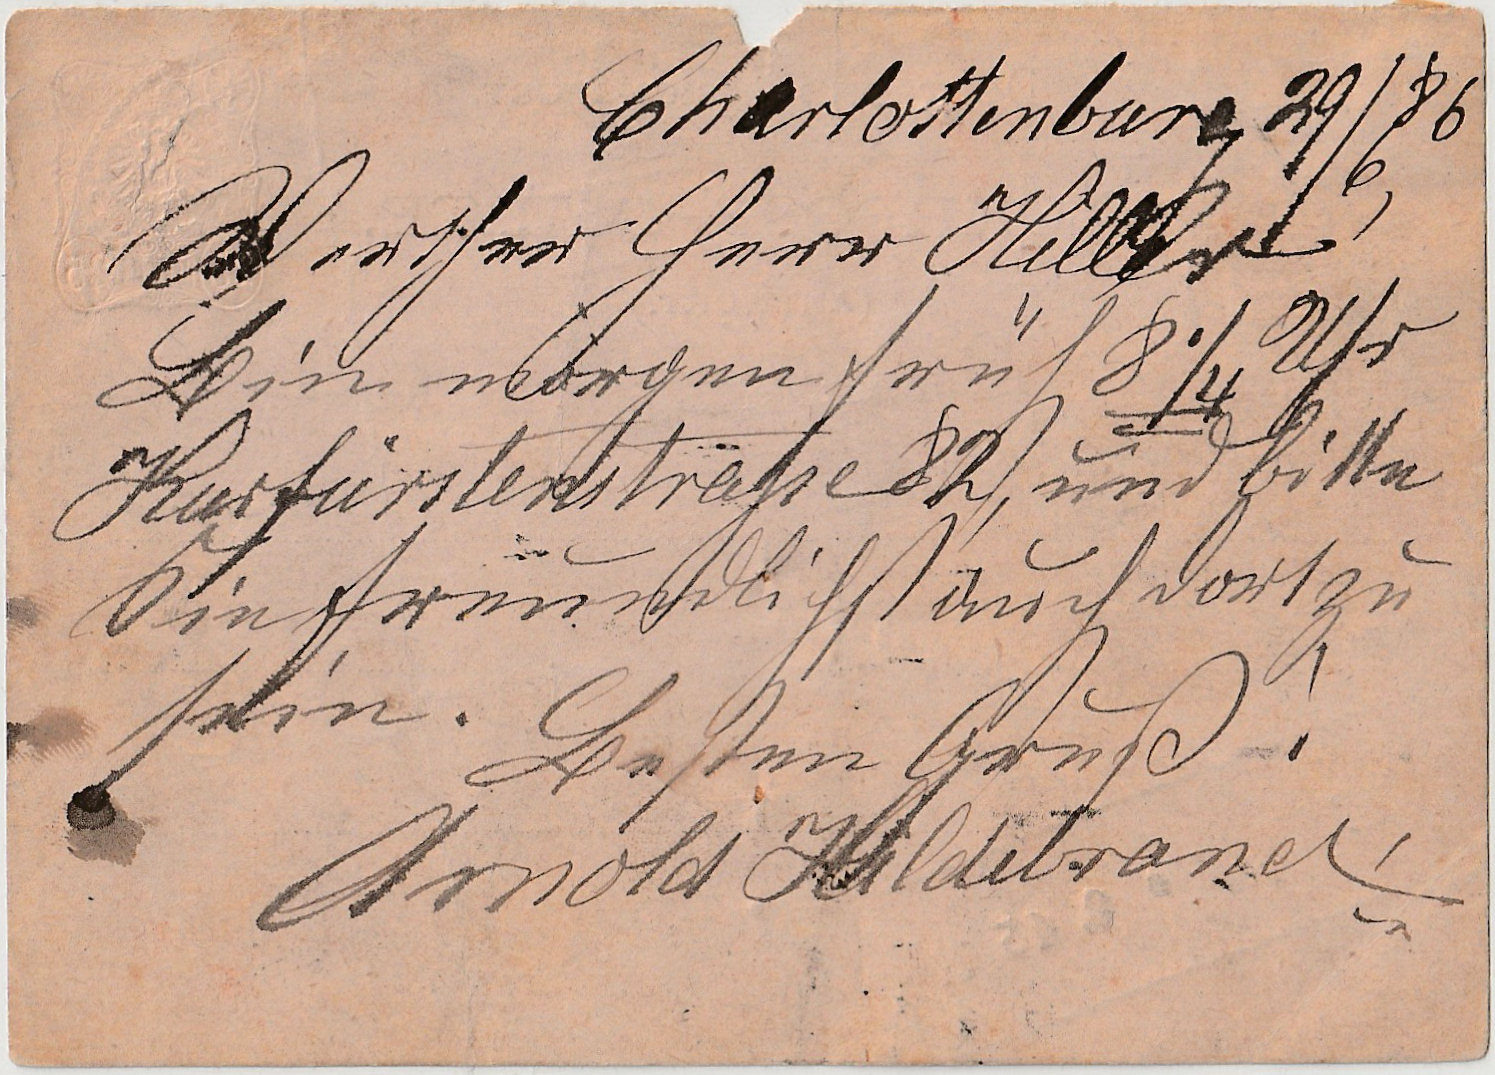 Charlottenburg 29/6 86
Werther Herr Hiller!
Bin morgen früh 8 1/4 Uhr
Kurfürstenstraße 82, und bitte
Sie freundlichst auch dort zu
sein. Besten Gruß!
Arnold Hildebrand